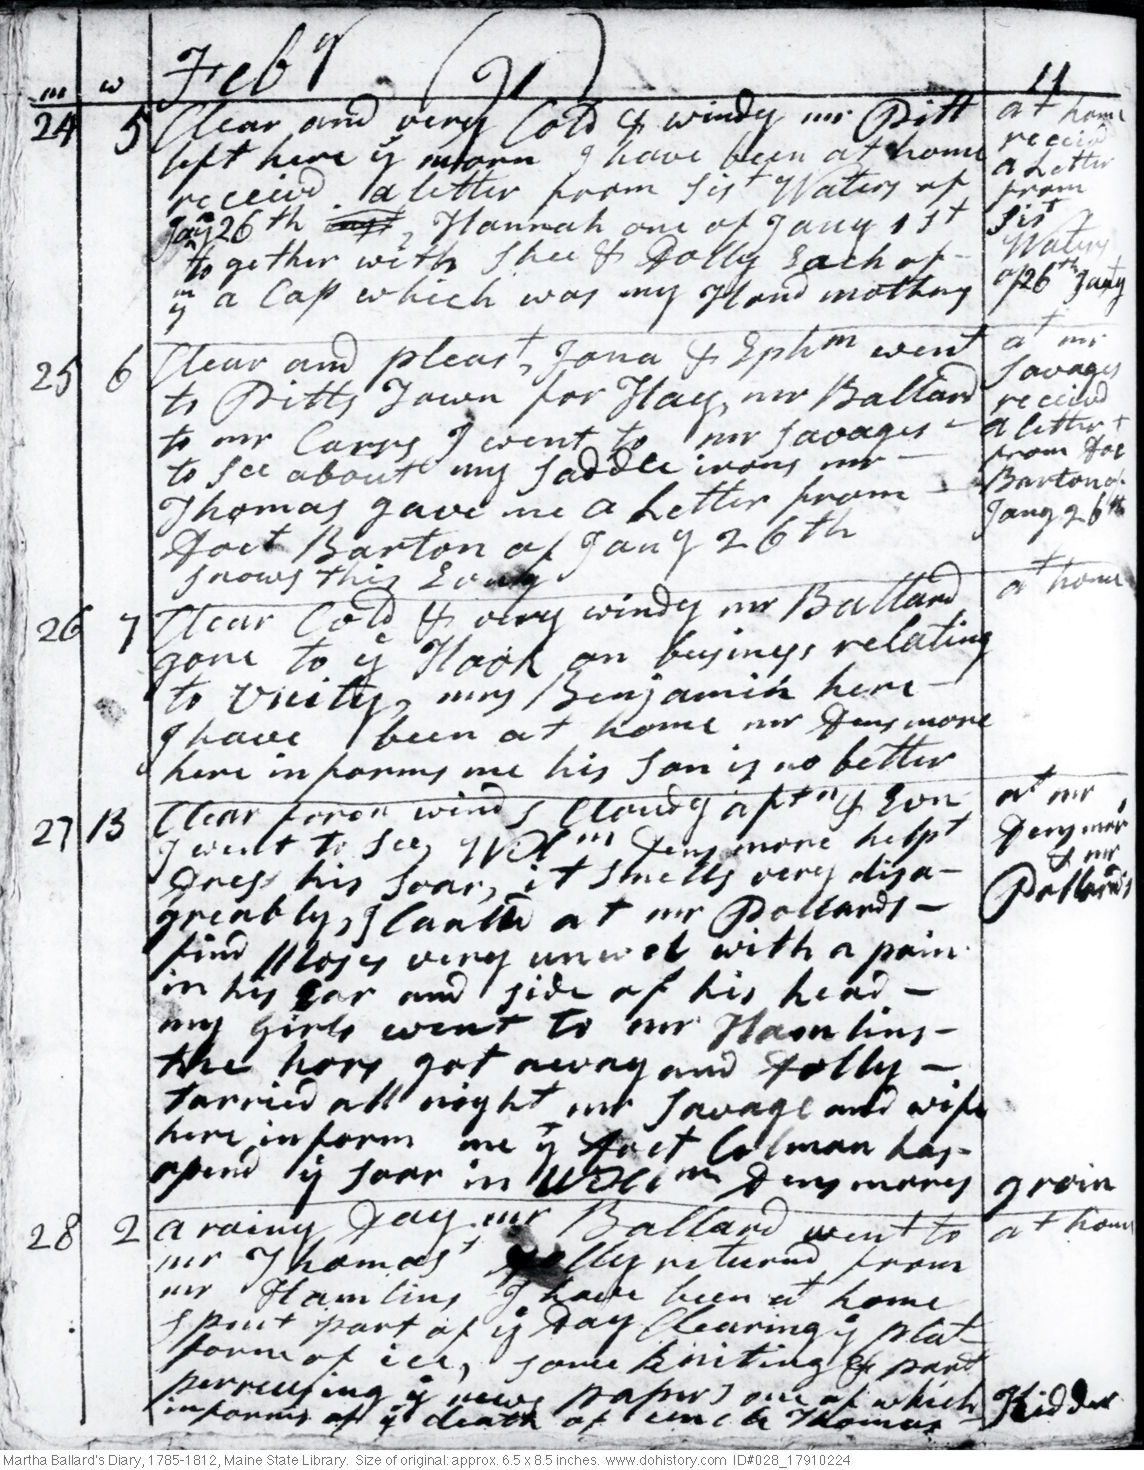 m w Febry (91) 11
24 5 Clear and very Cold & windy mr Pitt
left here ys morn I have been at home
receivd a letter from Sist Waters of
Jany 26th Hannah one of Jany 1st
to gether with Shee & Dolly Each of
ym a Cap which was my Hond mothers
at home
receivd
a Letter
from
Sist
Waters
of 26th Jany
25 6 Clear and pleast, Jona & Ephm went
to Pitts Town for Hay, mr Ballard
to mr Carrs I went to mr Savages –
to See about my Saddle irons mr –
Thomas gave me a Letter from –
Doct Barton of Jany 26th
snows this Evng
at mr
Savages
receivd
a letter
from Doct
Barton of
Jany 26th
26 7 Clear Cold & very windy mr Ballard
gone to ye Hook on business relating
to Unity, mrs Benjamin here –
I have been at home mr Densmore
here informs me his Son is no better
at home
27 B Clear foren wind, Cloudy aftn & Evn
I went to See Wm Densmore helpt
Dress his Soar, it smells very disa–
greably, I Calld at mr Pollards –
find Moses very unwel with a pain
in his Ear and side of his head –
my girls went to mr Hamlins –
the hors got away and Dolly –
tarried all night mr Savage and wife
here inform me yt Doct Colman has–
opend ye Soar in Wm Densmores groin
at mr
Densmors
& mr
Pollards
28 2 a rainy Day mr Ballard went to
mr Thomas' Dolly returnd from
mr Hamlins I have been at home
Spent part of ye Day Clearing ye plat
form of ice, some knitting & part
perreusing ye news papers one of which
informs of ye death of uncle Thomas Kidder
at home
Martha Ballard's Diary, 1785-1812, Maine State Library. Size of original: approx. 6.5 x 8.5 inches. www.dohistory.com ID#028_17910224